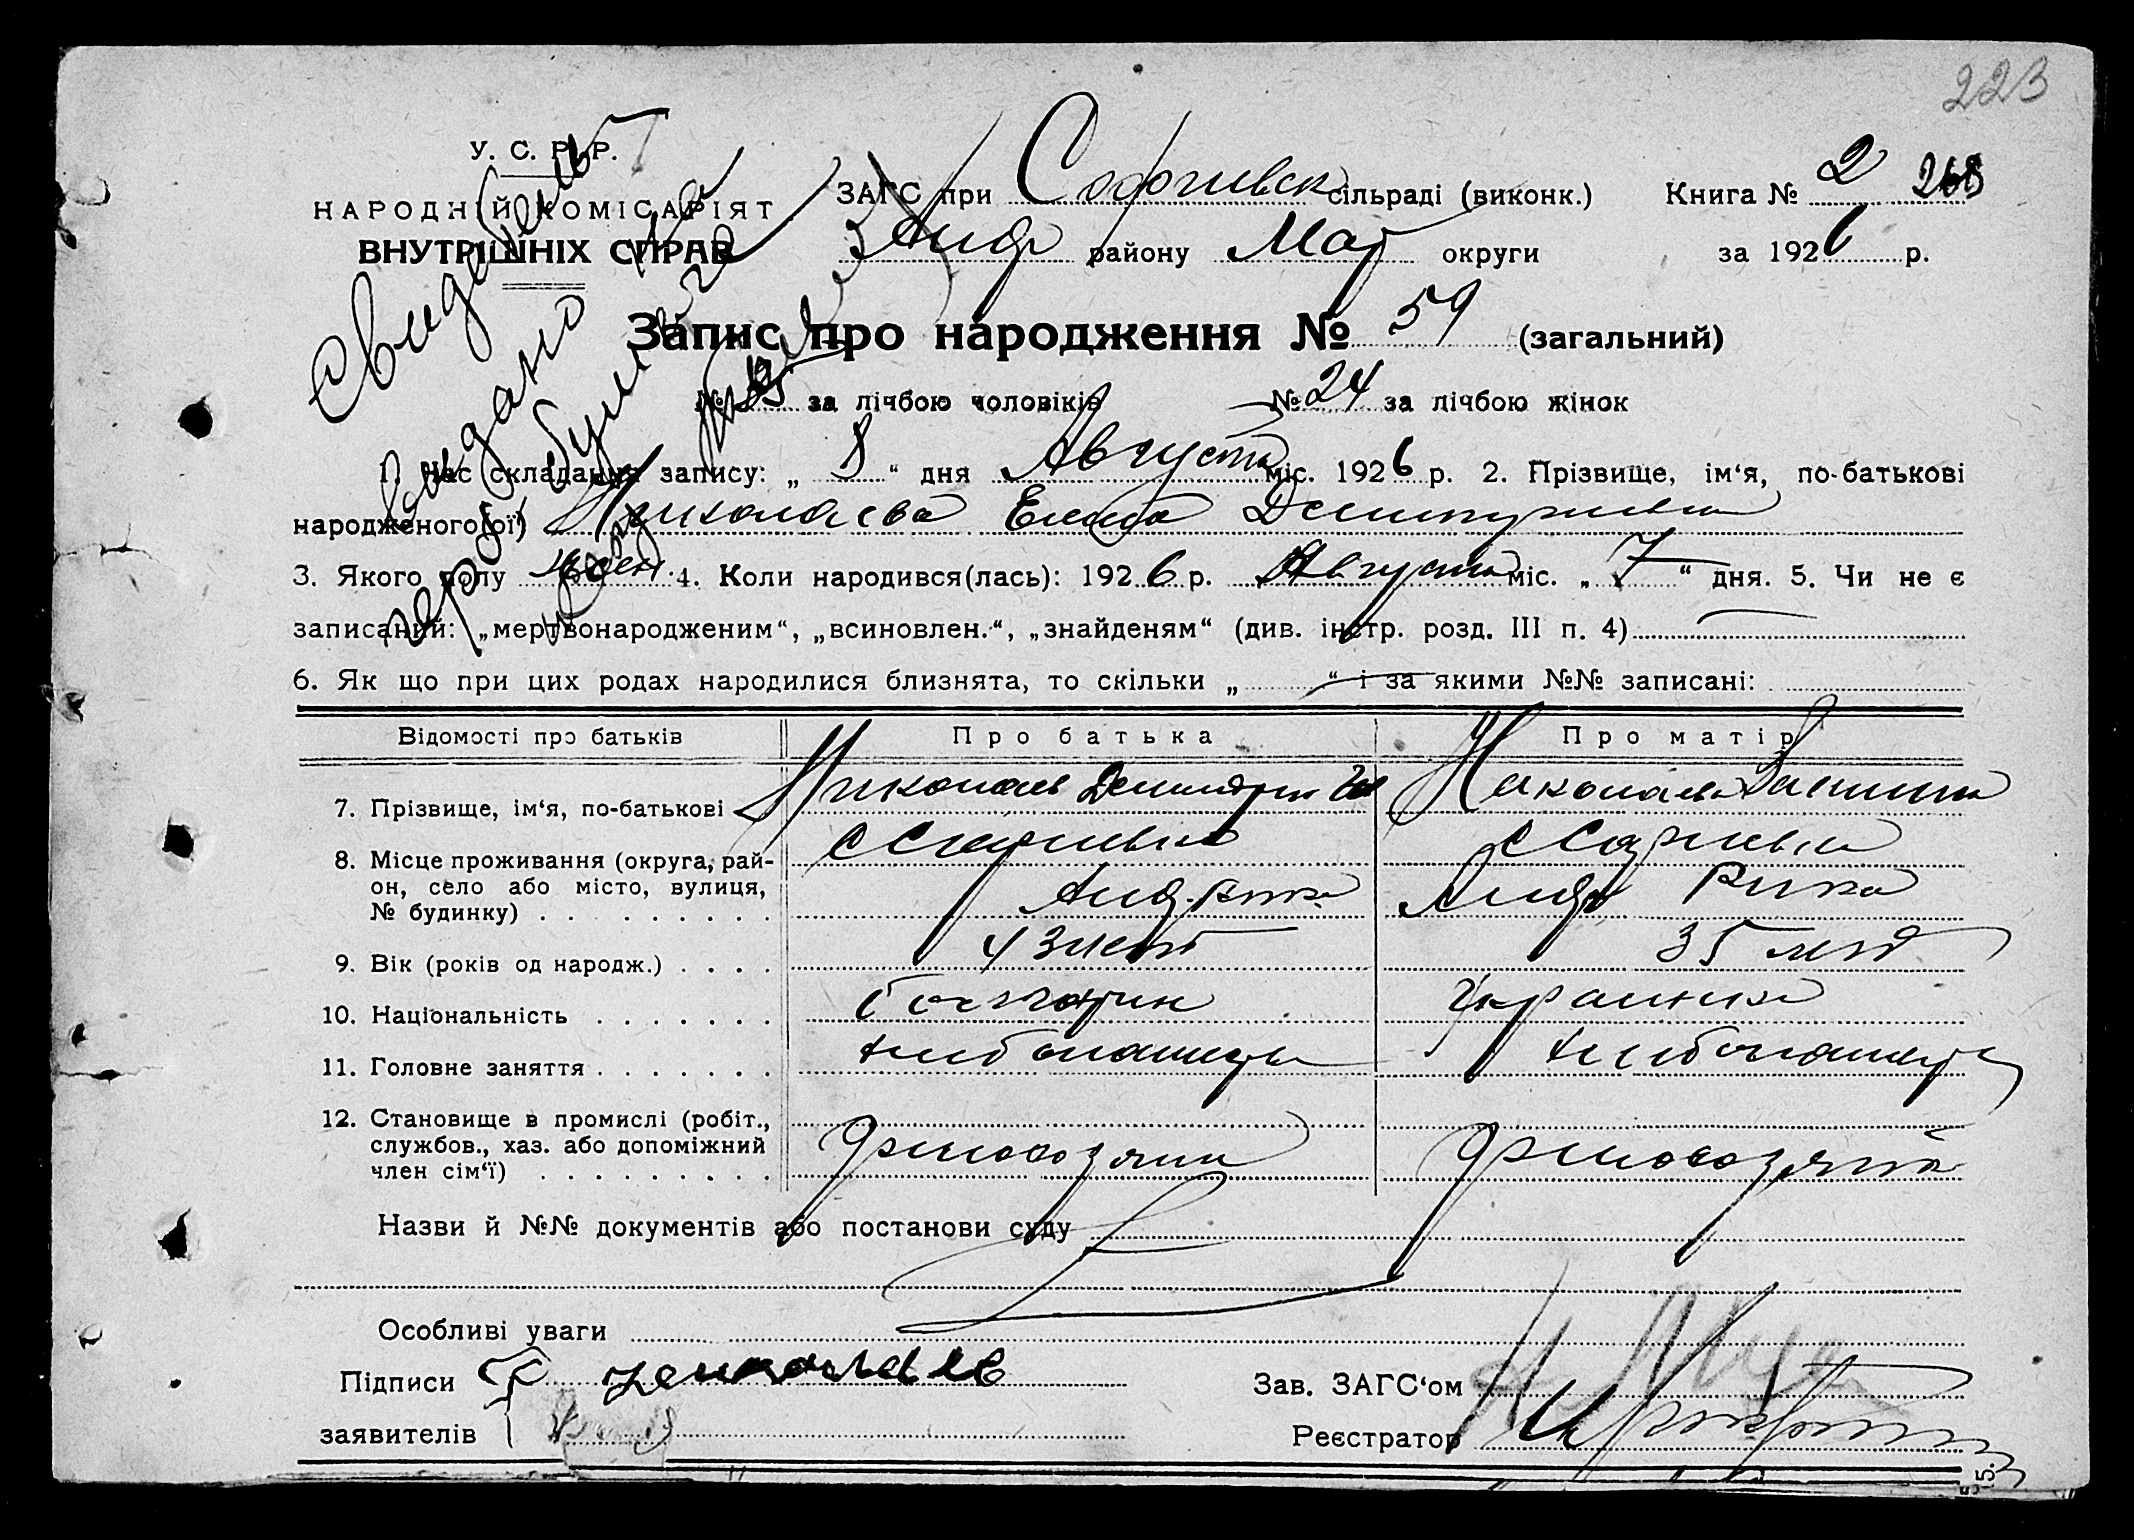 223
У. С. Р. Р.
НАРОДНІЙ КОМІСАРІЯТ
ВНУТРІШНІХ СПРАВ
ЗАГС при Софиевск сільраді (виконк.)
Книга № 2 268
Анд району Мар округи
за 1926 р.
Свидетель
выдано на
Запис про народження № 59 (загальний)
№ 35 за лічбою чоловіків № 24 за лічбою жінок
1. Час складання запису: „ 8 “ дня Августа міс. 1926 р. 2. Прізвище, ім‘я, по-батькові
народженого(ої) Николаева Елена Дмитриевна
3. Якого полу жен. 4. Коли народився(лась): 1926 р. Августа міс. „ 7 “ дня. 5. Чи не є
записаний: „мертвонародженим“, „всиновлен.“, „знайденям“ (див. інстр. розд. III п. 4)
6. Як що при цих родах народилися близнята, то скільки „ “ і за якими №№ записані:
Відомості про батьків Про батька Про матір
7. Прізвище, ім‘я, по-батькові Николаев Дмитри Николаева
8. Місце проживання (округа, рай-
он, село або місто, вулиця,
№ будинку)
Анд. Анд
9. Вік (років од народж.) 43 лет 35 лет
10. Національність Болгарин Украинка
11. Головне заняття хлебопашец хлебопашец
12. Становище в промислі (робіт.,
службов., хаз. або допоміжний
член сім‘ї)
Назви й №№ документів або постанови суду
Особливі уваги
Підписи
заявителів
николаев
Зав. ЗАГС‘ом
Реєстратор